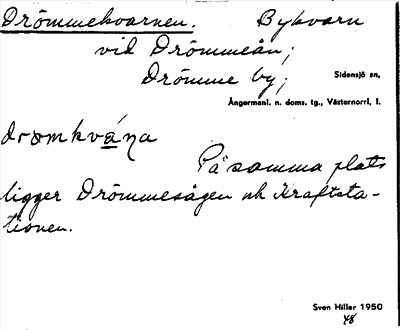 Drömmekvarnen. Bykvarn
vid Drömmeån;
Drömme by; Sidensjö sn,
Ångermanl. n. doms. tg., Västernorrl, l.
drømkvá̱ṇa
På samma plats
ligger Drömmesågen och Kraftsta-
tionen.
Sven Hiller 1950
48